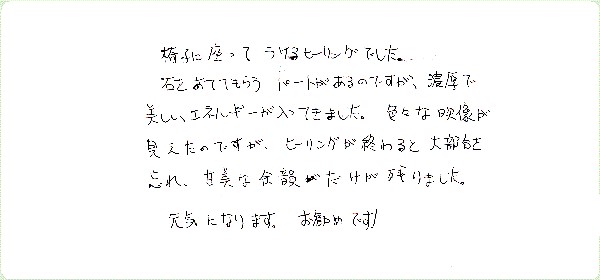 椅子に座って うけるヒーリングでした。
石をあててもらう パートがあるのですが、濃厚で
美しいエネルギーが入ってきました。 色々な映像が
見えたのですが、ヒーリングが終わると 大部分を
忘れ、甘美な余韻がだけが残りました。
元気になります。 お勧めです!